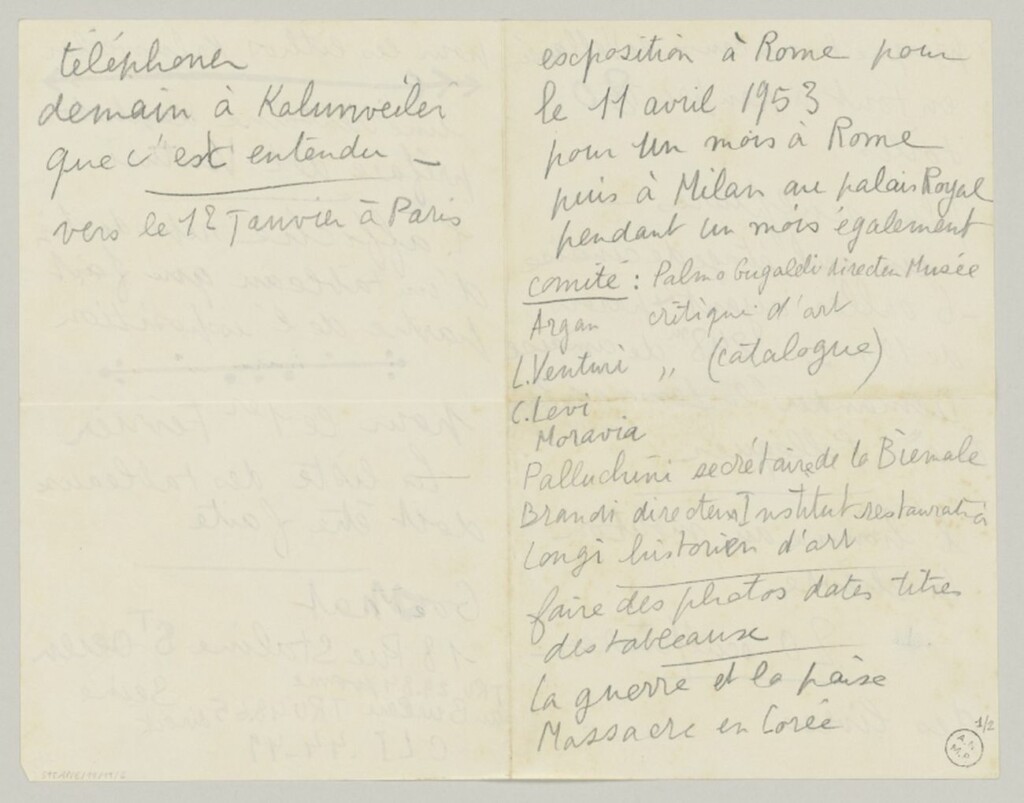 téléphoner
demain à Kahnweiler
que c'est entendu —
vers le 12 Janvier à Paris
exposition à Rome pour
le 11 avril 1953
pour un mois à Rome
puis à Milan au palais Royal
pendant un mois également
comité : Palma Bugaldi directeu Musée
Argan critique d'art
L. Venturi ,, (catalogue)
C. Levi
Moravia
Palluchini secrétaire de la Biennale
Brandi directeur Institut restauratio
Longi historien d'art
faire des photos dates titres
des tableaux
La guerre et la paix
Massacre en Corée
1/2
A.N.
M.P.